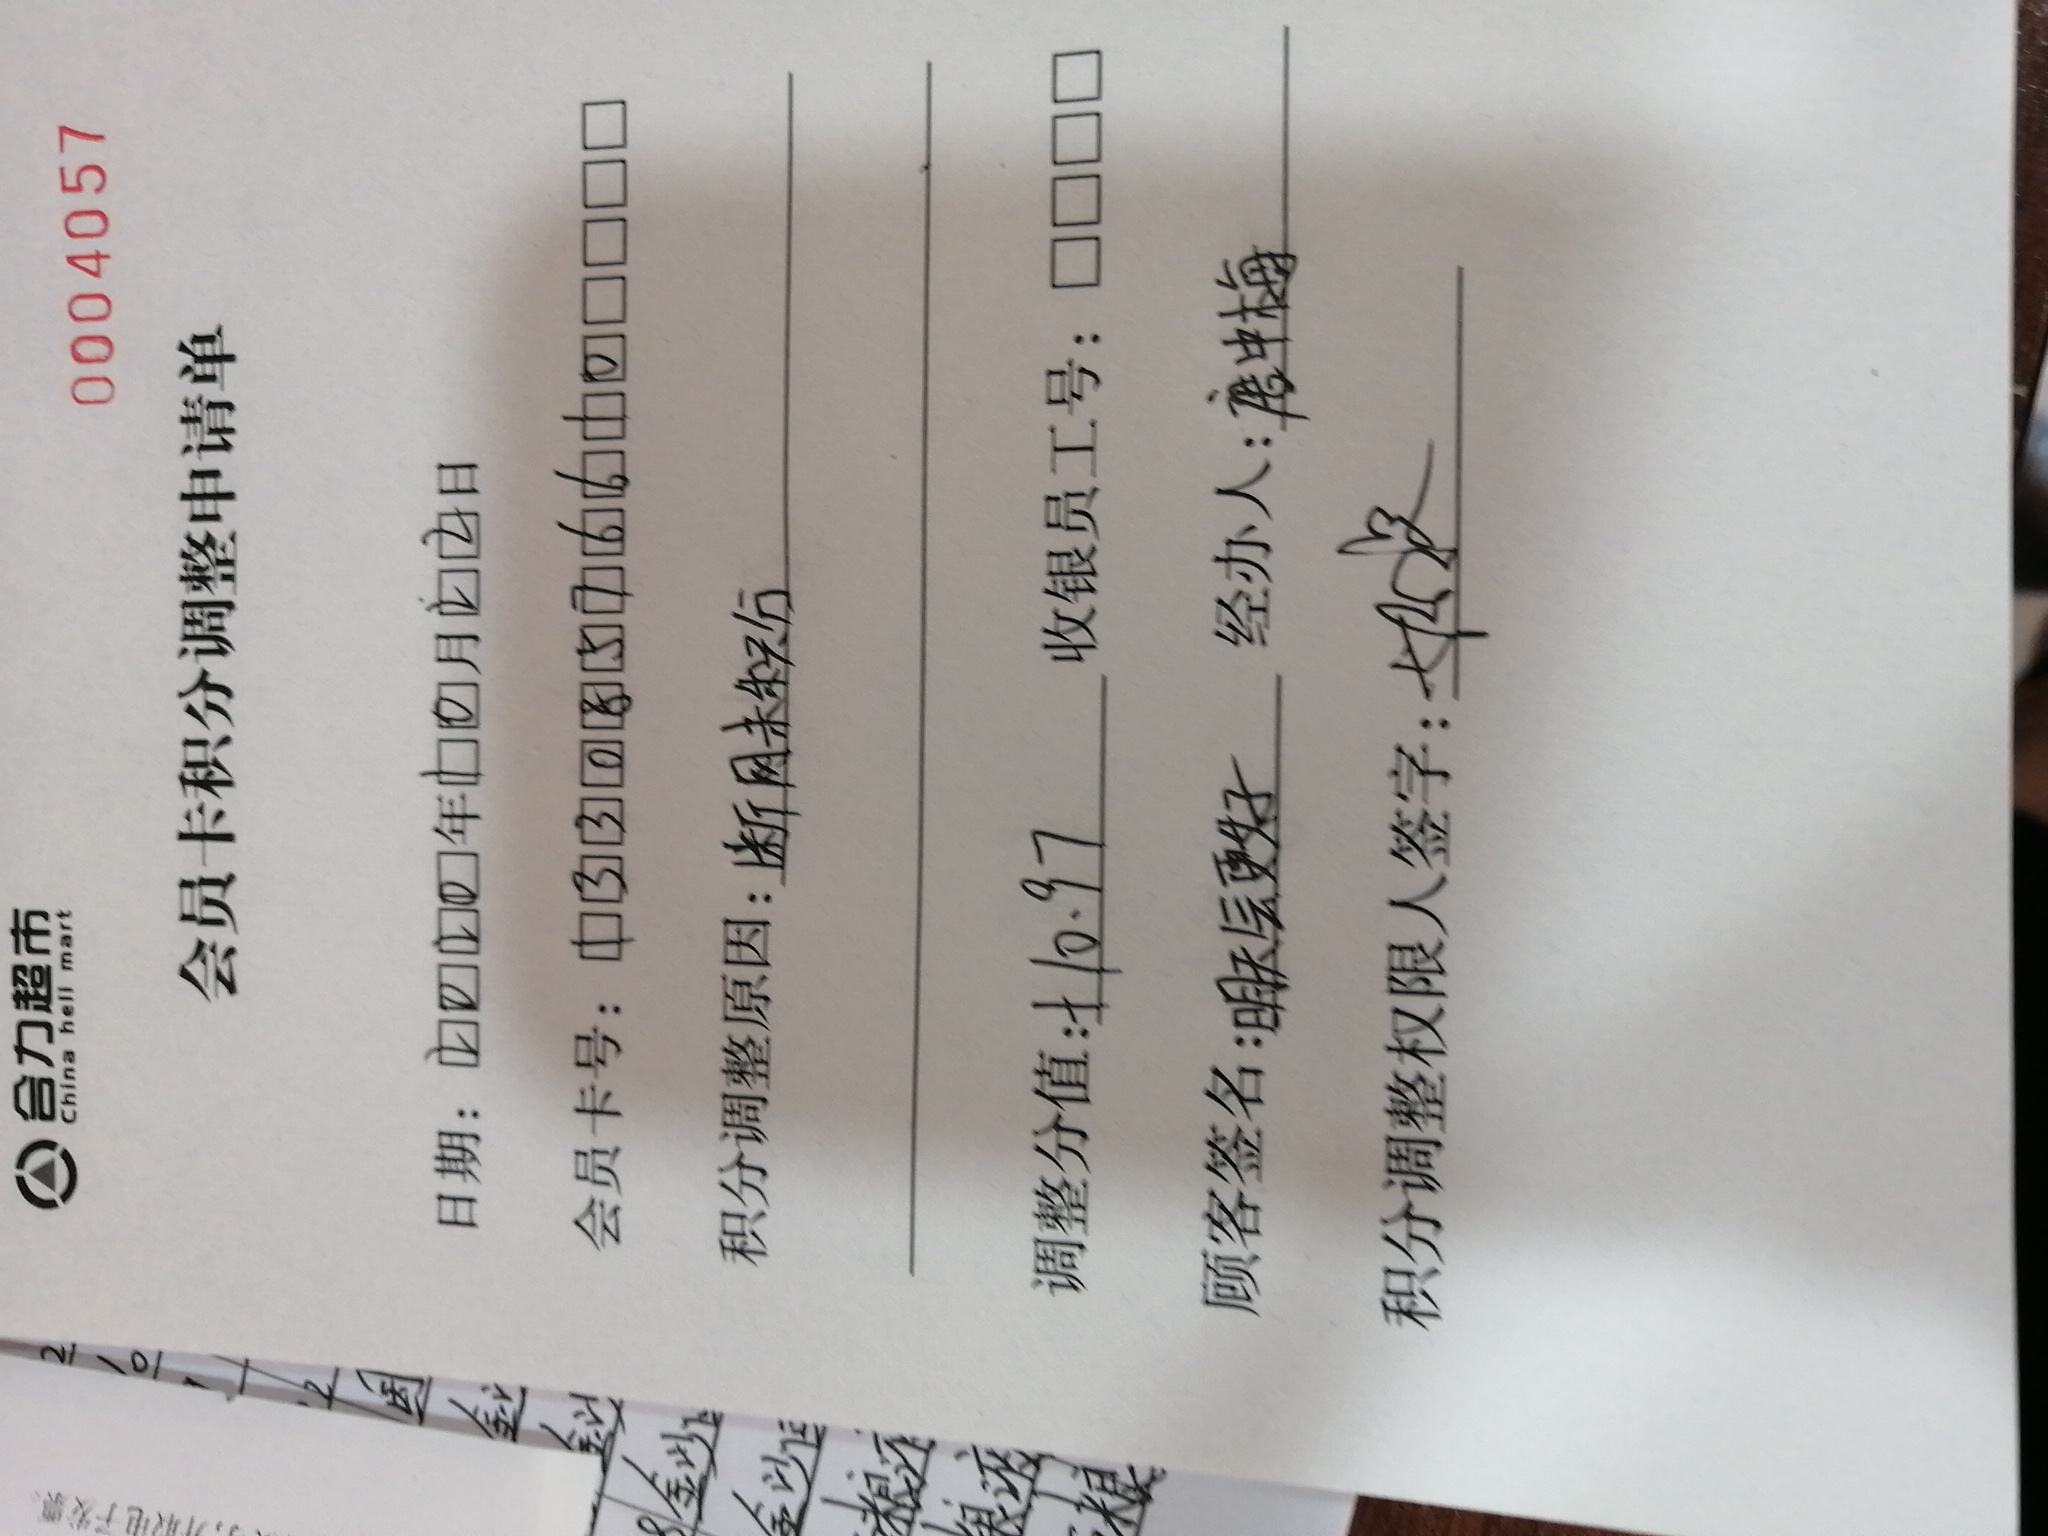 合力超市
China hell mart
0004057
会员卡积分调整申请单
日期：2020年10月22日
会员卡号：13308576610
积分调整原因：断网未积分
调整分值：+10.97 收银员工号：□□□□
顾客签名： 经办人：唐中梅
积分调整权限人签字：